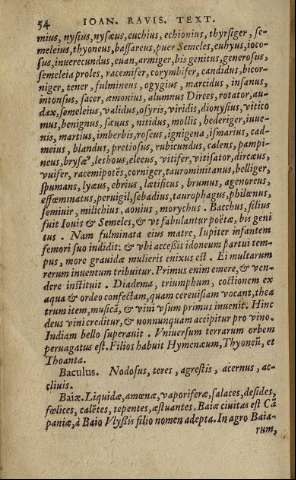 54 IOAN. RAVIS. TEXT.
mius, nysius, nysæus, cuchius, echionius, thyrsiger, se-
meleius, thyoneus, bassareus, puer Semeles, euhyus, ioco-
sus, inuerecundus, euan, armiger, bis genitus, generosus,
semeleia proles, racemifer, corymbifer, candidus, bicor-
niger, tener, fulmineus, ogygius, marcidus, insanus,
intonsus, sacer, æmonius, alumnus Dirces, rotator, au-
dax, semeleius, validus, osyris, viridis, dionysius, vitico
mus, benignus, sæuus, nitidus, mollis, hederiger, iuue-
nis, martius, imberbis, roseus, ignigena, ismarius, cad-
meius, blandus, pretiosus, rubicundus, calens, pampi-
neus, brysæus, lesbous, eleeus, vitifer, vitisator, dircæus,
vuifer, racemipotēs, corniger, taurominitanus, belliger,
spumans, lyæus, ebrius, lætificus, brumus, agenoreus,
effœminatus, peruigil, sebadius, taurophagus, philœnus,
semiuir, milichius, aonius, morychus. Bacchus, filius
fuit Iouis & Semeles, & vt fabulantur poëtæ, bis geni
tus. Nam fulminata eius matre, Iupiter infantem
femori suo indidit: & vbi accessit idoneum partui tem-
pus, more grauidæ mulieris enixus est. Ei multarum
rerum inuentum tribuitur. Primus enim emere, & ven-
dere instituit. Diadema, triumphum, coctionem ex
aqua & ordeo confectam, quam cereuisiam vocant, thea
trum item, musicā, & vini vsum primus inuenit. Hinc
deus vini creditur, & nonnunquam accipitur pro vino.
Indiam bello superauit. Vniuersum terrarum orbem
peruagatus est. Filios habuit Hymenæum, Thyoneū, et
Thoanta.
Baculus. Nodosus, teres, agrestis, acernus, ac-
cliuis.
Baiæ. Liquidæ, amœnæ, vaporiferæ, salaces, desides,
fœlices, calētes, tepentes, æstuantes. Baiæ ciuitas est Cā
paniæ, à Baio Vlyssis filio nomen adepta. In agro Baia-
rum,